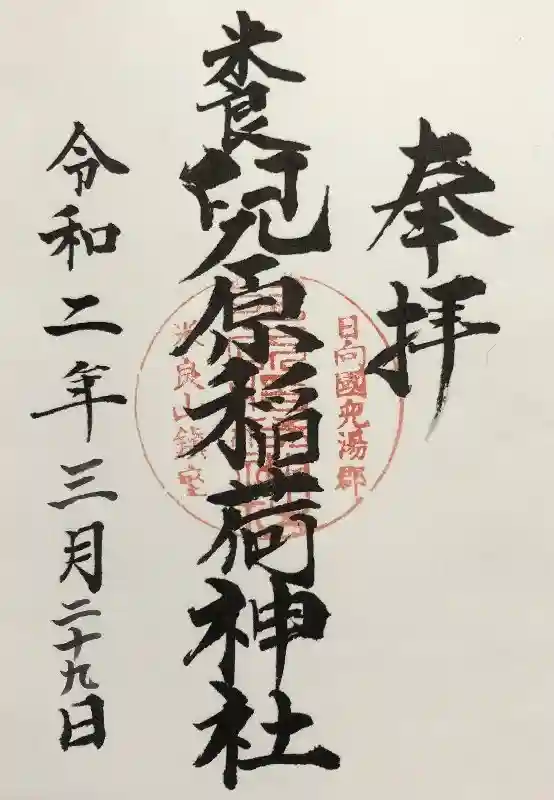 奉拝
日向國兒湯郡
米良山鎮座
米良
兒原稲荷神社
令和二年三月二十九日